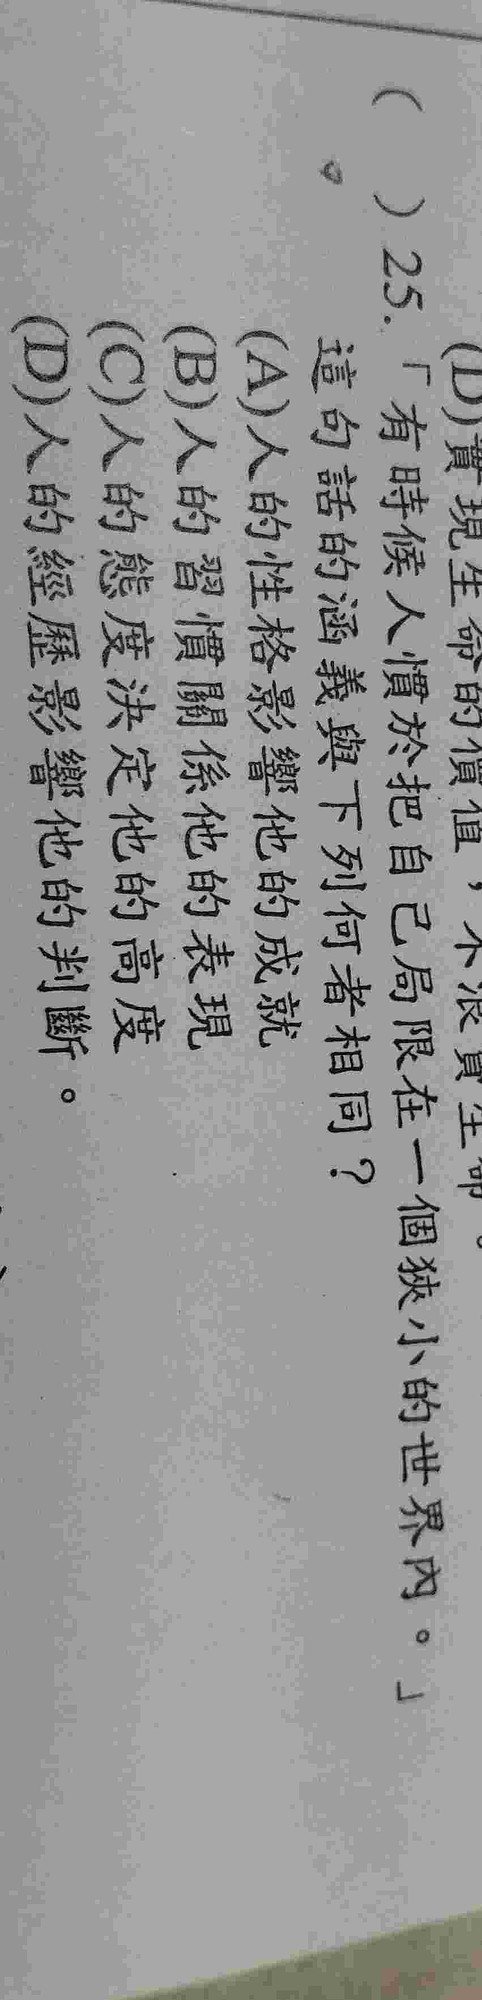 (D)實現生命的價值，不浪費生命。
( )25.「有時候人慣於把自己局限在一個狹小的世界內。」
這句話的涵義與下列何者相同？
(A)人的性格影響他的成就
(B)人的習慣關係他的表現
(C)人的態度決定他的高度
(D)人的經歷影響他的判斷。